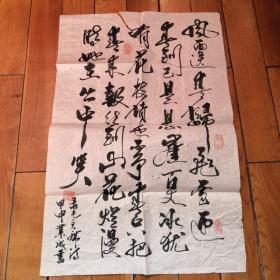 風雨送春歸飛雪迎
春到已是悬崖百丈冰犹
有花枝俏俏也不争春只把
春来報待到山花烂漫
時她在丛中笑
毛主席詩
甲申業成書